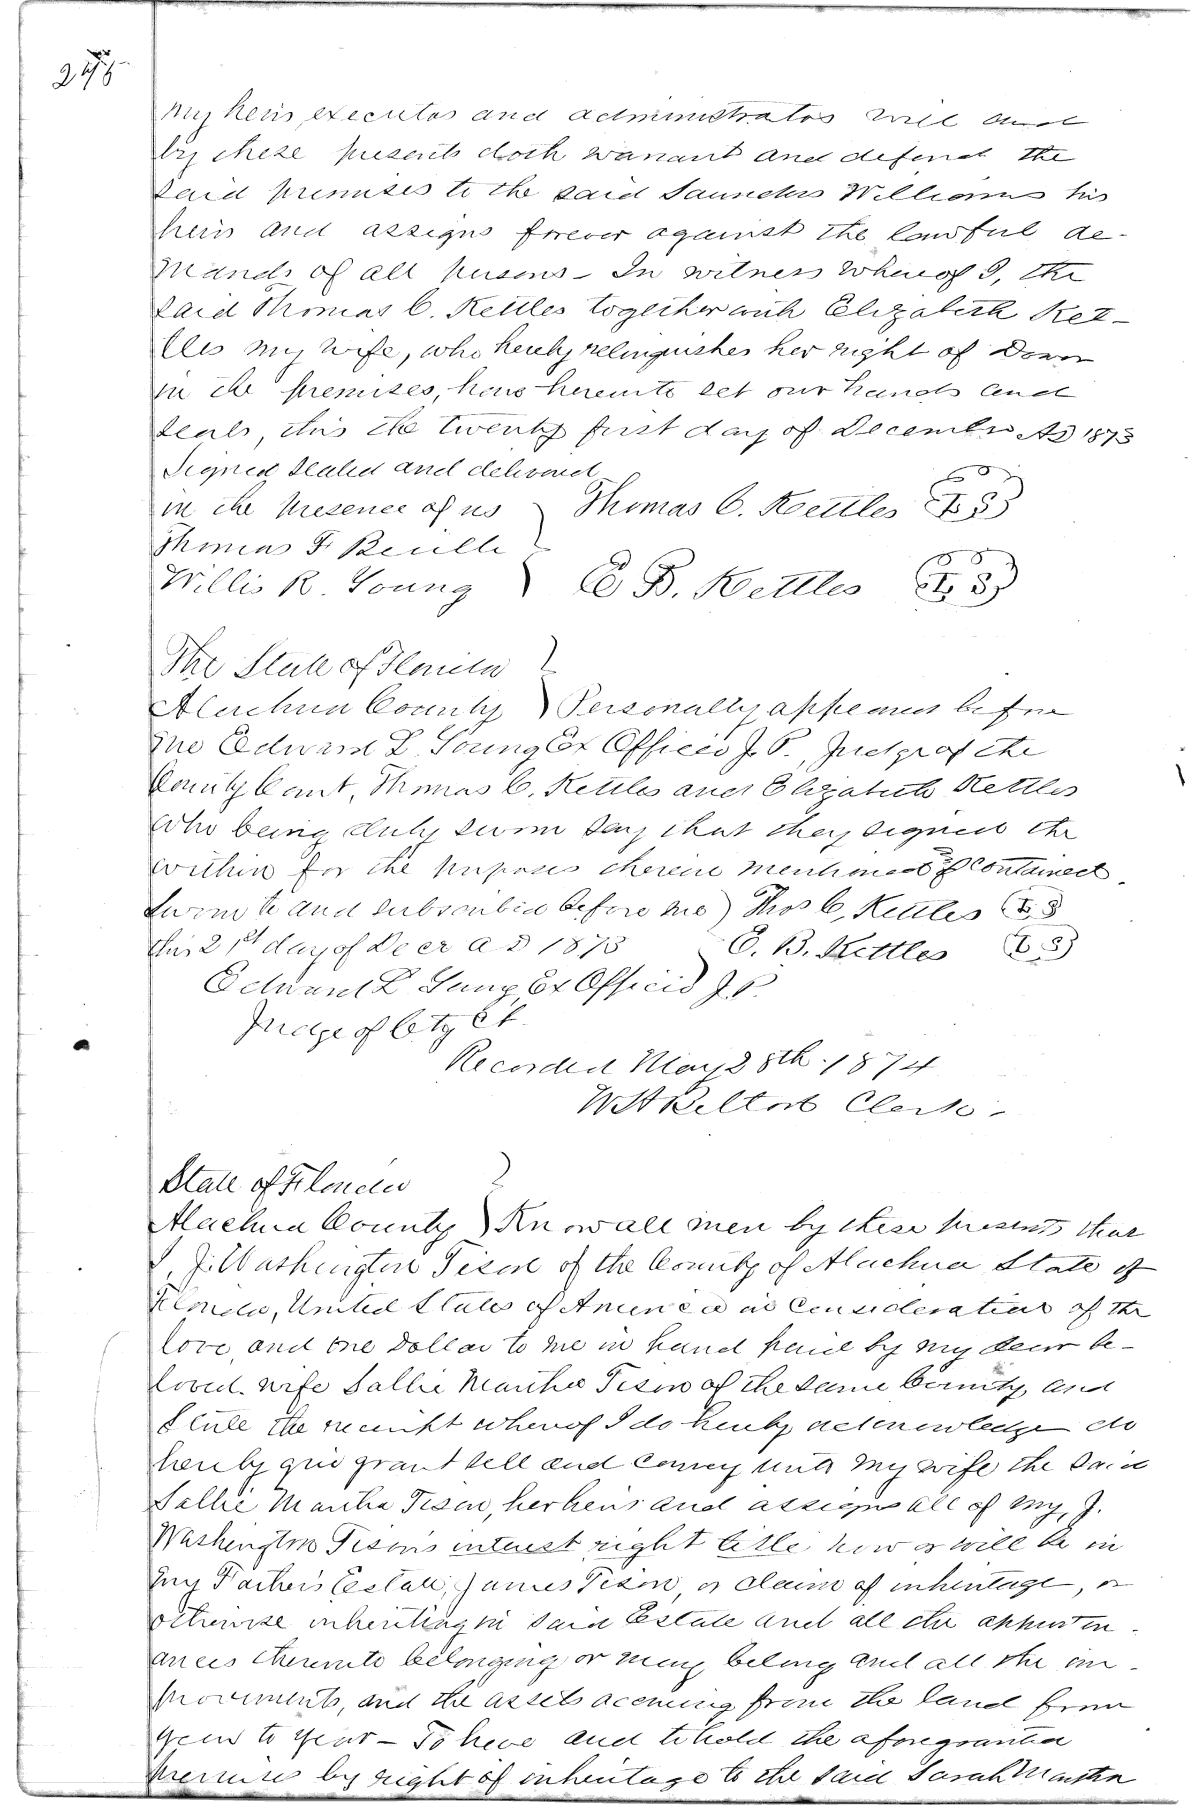 my heirs, executors and administrators will and
by these presents doth warrant and defend the
said premises to the said Saunders Williams his
heirs and assigns forever against the lawful de-
mands of all persons - In witness whereof I, the
said Thomas C. Kettles together with Elizabeth Ket-
tles my wife, who hereby relinquishes her right of Dower
in the premises, have hereunto set our hands and
seals, this the twenty first day of December AD 1873
Signed Sealed and delivered
in the presence of us } Thomas C. Kettles LS
Thomas F
Willis R. Young } E B. Kettles LS
The State of Florida }
Alachua County } Personally appeared before
me Edward L. Young Ex Officio J. P., Judge of the
County Court, Thomas C. Kettles and Elizabeth Kettles
who being duly sworn say that they signed the
within for the purposes therein mentioned & contained.
Sworn to and subscribed before me ) Thos C, Kettles LS
this 21st day of Decr A D 1873 E. B. Kettles LS
Edward L Young Ex Officio J. P.
Judge of Cty Ct.
Recorded May 28th 1874
Clerk -
State of Florida }
Alachua County } Know all men by these presents that
I, J. Washington Tison of the County of Alachua State of
Florida, United States of America in consideration of the
love, and one Dollar to me in hand paid by my dear be-
loved wife Sallie Martha Tison of the same County and
State the receipt whereof I do hereby acknowledge do
hereby give grant sell and convey unto my wife the said
Sallie Martha Tison, her heirs and assigns all of my, J.
Washington Tison's interest right title now or will be in
my Father's Estate, James Tison, or claim of inheritage, or
otherwise inheriting in said Estate and all the appurten-
ances thereunto belonging or may belong and all the im-
provements, and the assets accruing from the land from
year to year - To have and to hold the aforegranted
premises by right of inheritage to the said Sarah Martha